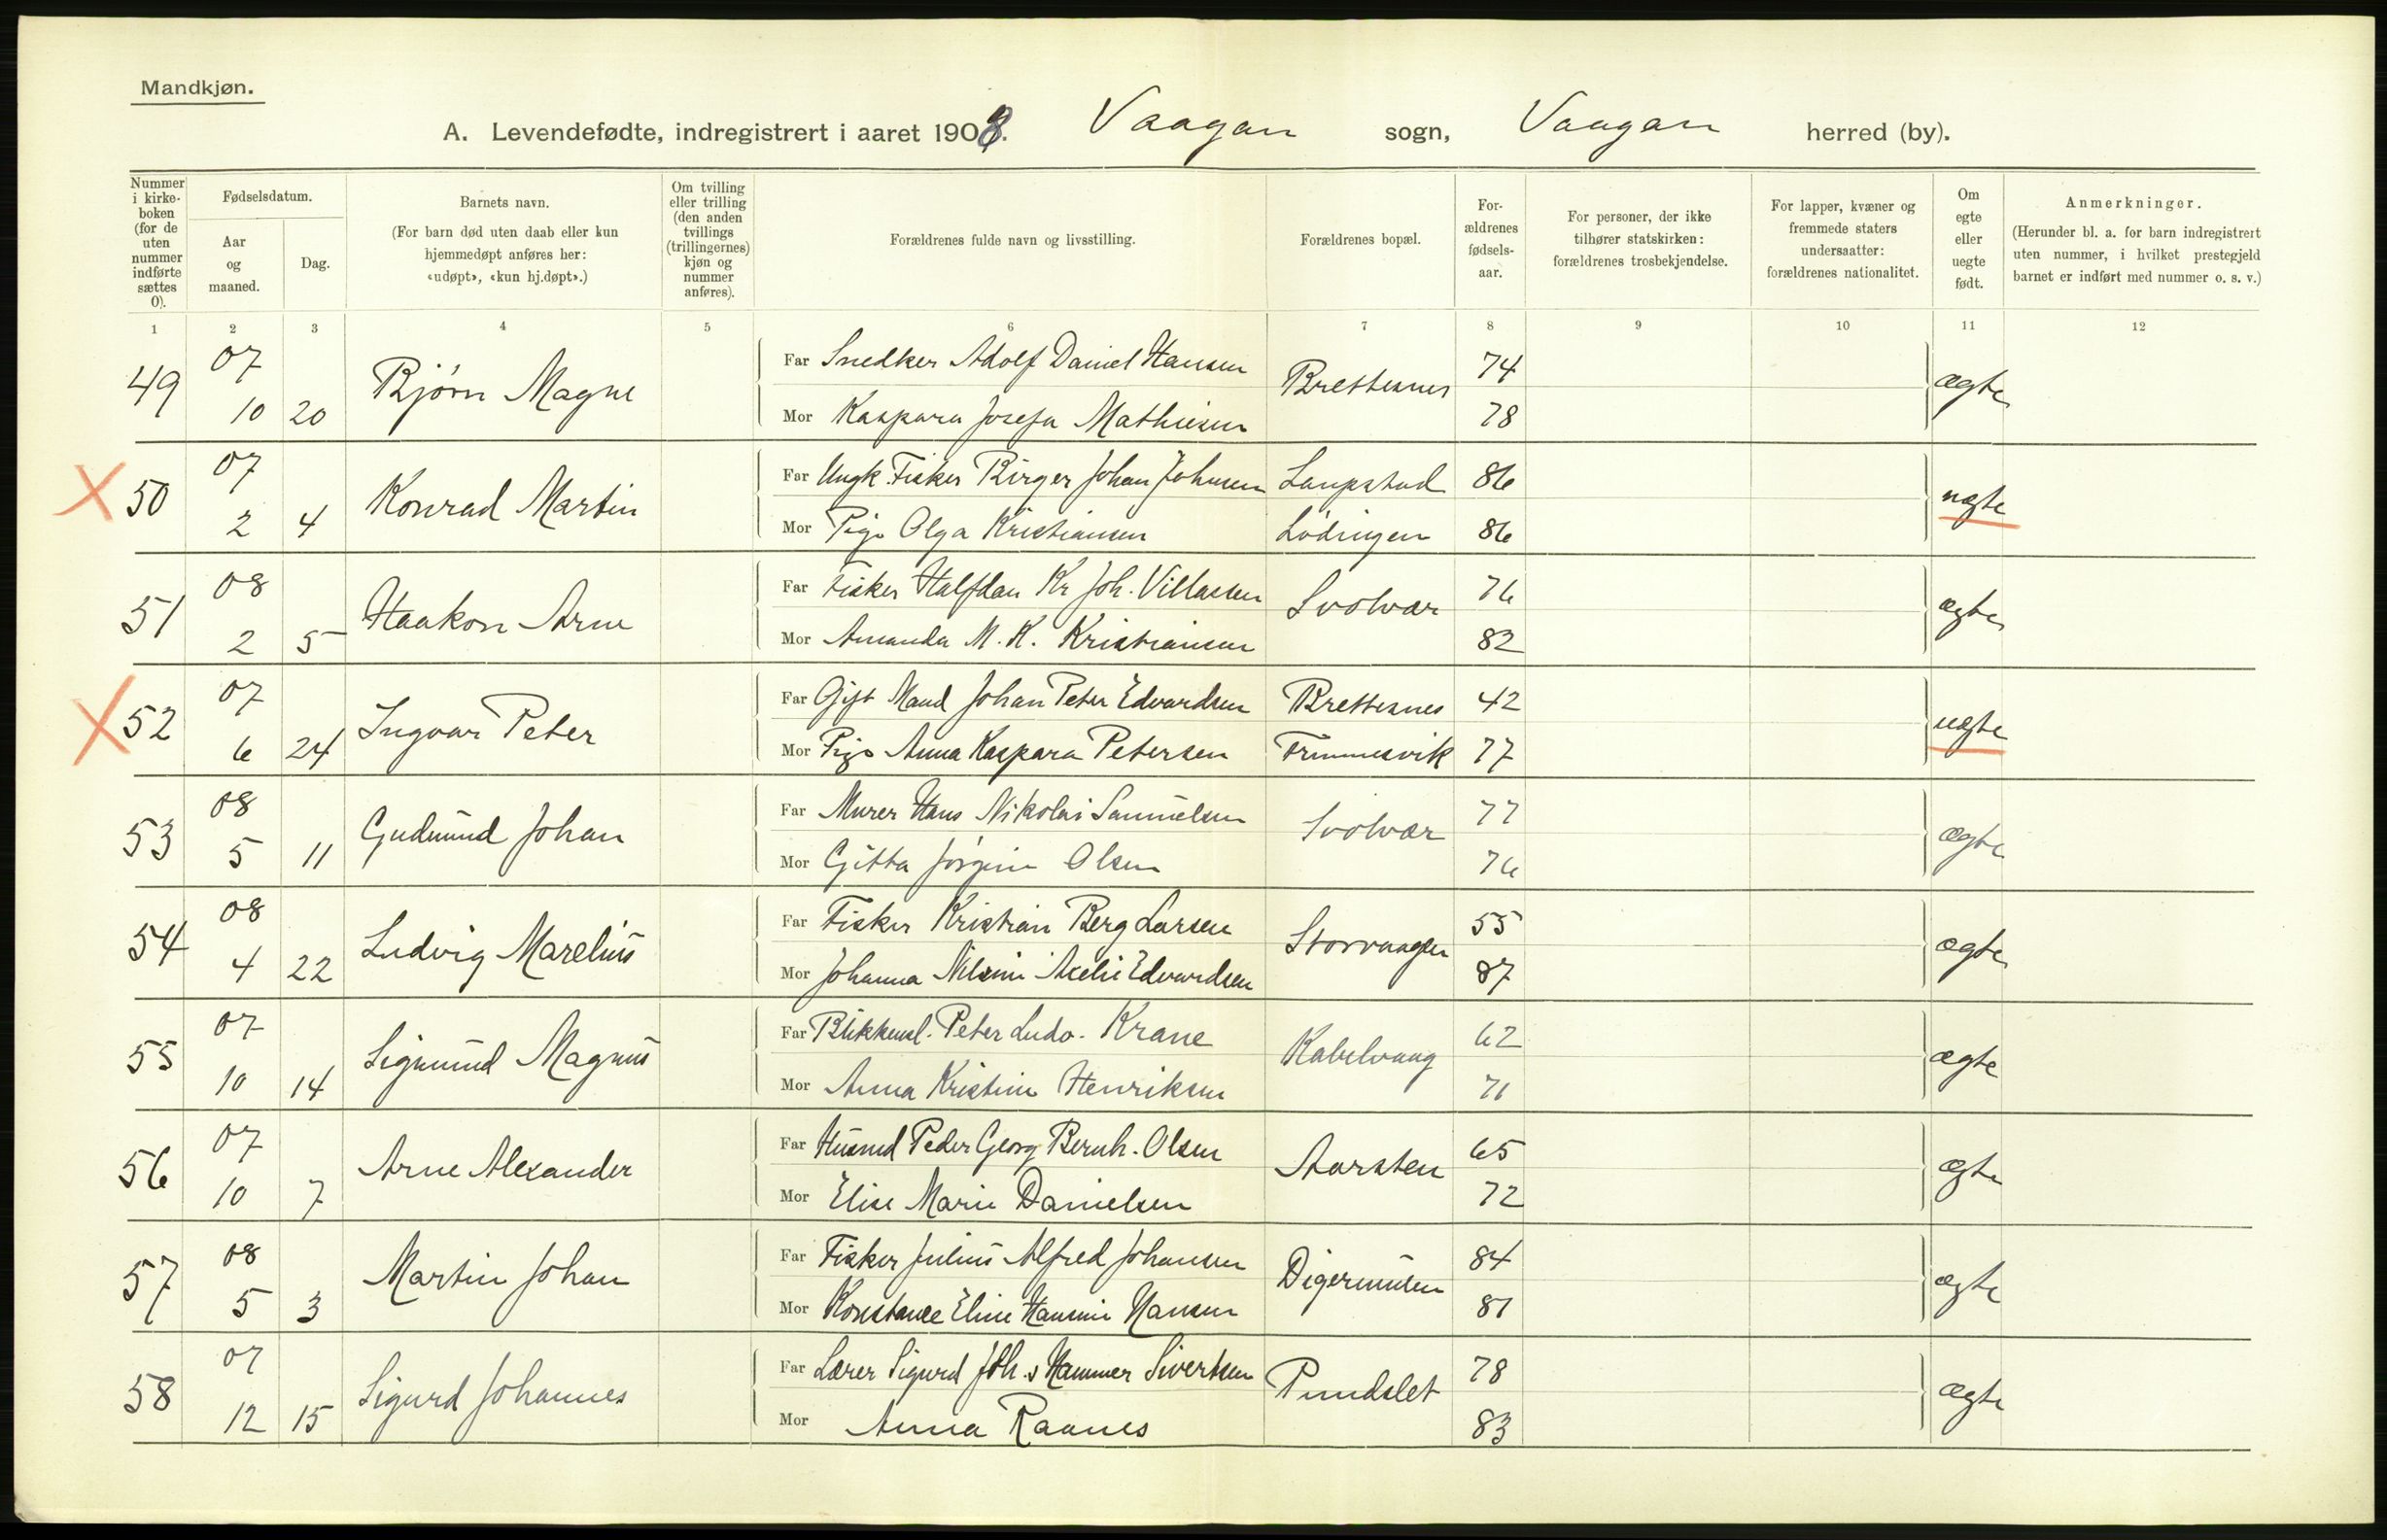 Mandkjøn.
A. Levendefødte, indregistrert i aaret 1908. Vaagan sogn, Vaagan herred (by).
Nummer i kirke-boken (for de uten nummer indførte sættes 0).
Fødselsdatum.
Aar og maaned.
Dag.
Barnets navn.
(For barn død uten daab eller kun hjemmedøpt anføres her: «udøpt», «kun hj.døpt».)
Om tvilling eller trilling (den anden tvillings (trillingernes) kjøn og nummer anføres).
Forældrenes fulde navn og livsstilling.
Forældrenes bopæl.
For-ældrenes fødsels-aar.
For personer, der ikke tilhører statskirken: forældrenes trosbekjendelse.
For lapper, kvæner og fremmede staters undersaatter: forældrenes nationalitet.
Om egte eller uegte født.
Anmerkninger.
(Herunder bl. a. for barn indregistrert uten nummer, i hvilket prestegjeld barnet er indført med nummer o. s. v.)
1 2 3 4 5 6 7 8 9 10 11 12
49 07 10 20 Bjørn Magne
Far Snedker Adolf Daniel Hansen Brettesnes 74 ægte
Mor Kaspara Josefa Mathiesen 78
X 50 07 2 4 Konrad Martin
Far Ungk. Fisker Birger Johan Johnsen Laupstad 86 uægte
Mor Pige Olga Kristiansen Lødingen 86
51 08 2 5 Haakon Arne
Far Fisker Halfdan Kr Joh. Villassen Svolvær 76 ægte
Mor Amanda M. K. Kristiansen 82
X 52 07 6 24 Ingvar Peter
Far Gift Mand Johan Peter Edvardsen Brettesnes 42 uægte
Mor Pige Anna Kaspara Petersen 77
53 08 5 11 Gudmund Johan
Far Murer Hans Nikolai Samuelsen Svolvær 77 ægte
Mor Gitta Jørgine Olsen 76
54 08 4 22 Ludvig Marelius
Far Fisker Kristian Berg Larsen Storvaagen 55 ægte
Mor Johanna Nilsine Axelie Edvardsen 87
55 07 10 14 Sigmund Magnus
Far Blikkensl. Peter Ludv. Krane Kabelvaag 62 ægte
Mor Anna Kristine Henriksen 71
56 07 10 7 Arne Alexander
Far Husmd Peder Georg Bernh. Olsen Aarsten 65 ægte
Mor Elise Marie Danielsen 72
57 08 5 3 Martin Johan
Far Fisker Julius Alfred Johansen Digermulen 84 ægte
Mor Konstance Eline Hansine Hansen 81
58 07 12 15 Sigurd Johannes
Far Lærer Sigurd Joh.s Hammer Sivertsen Pundslet 78 ægte
Mor Anna Raanes 83